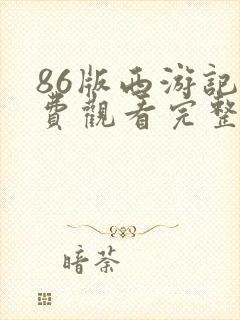 86版西游記
費觀看完整
暗荼